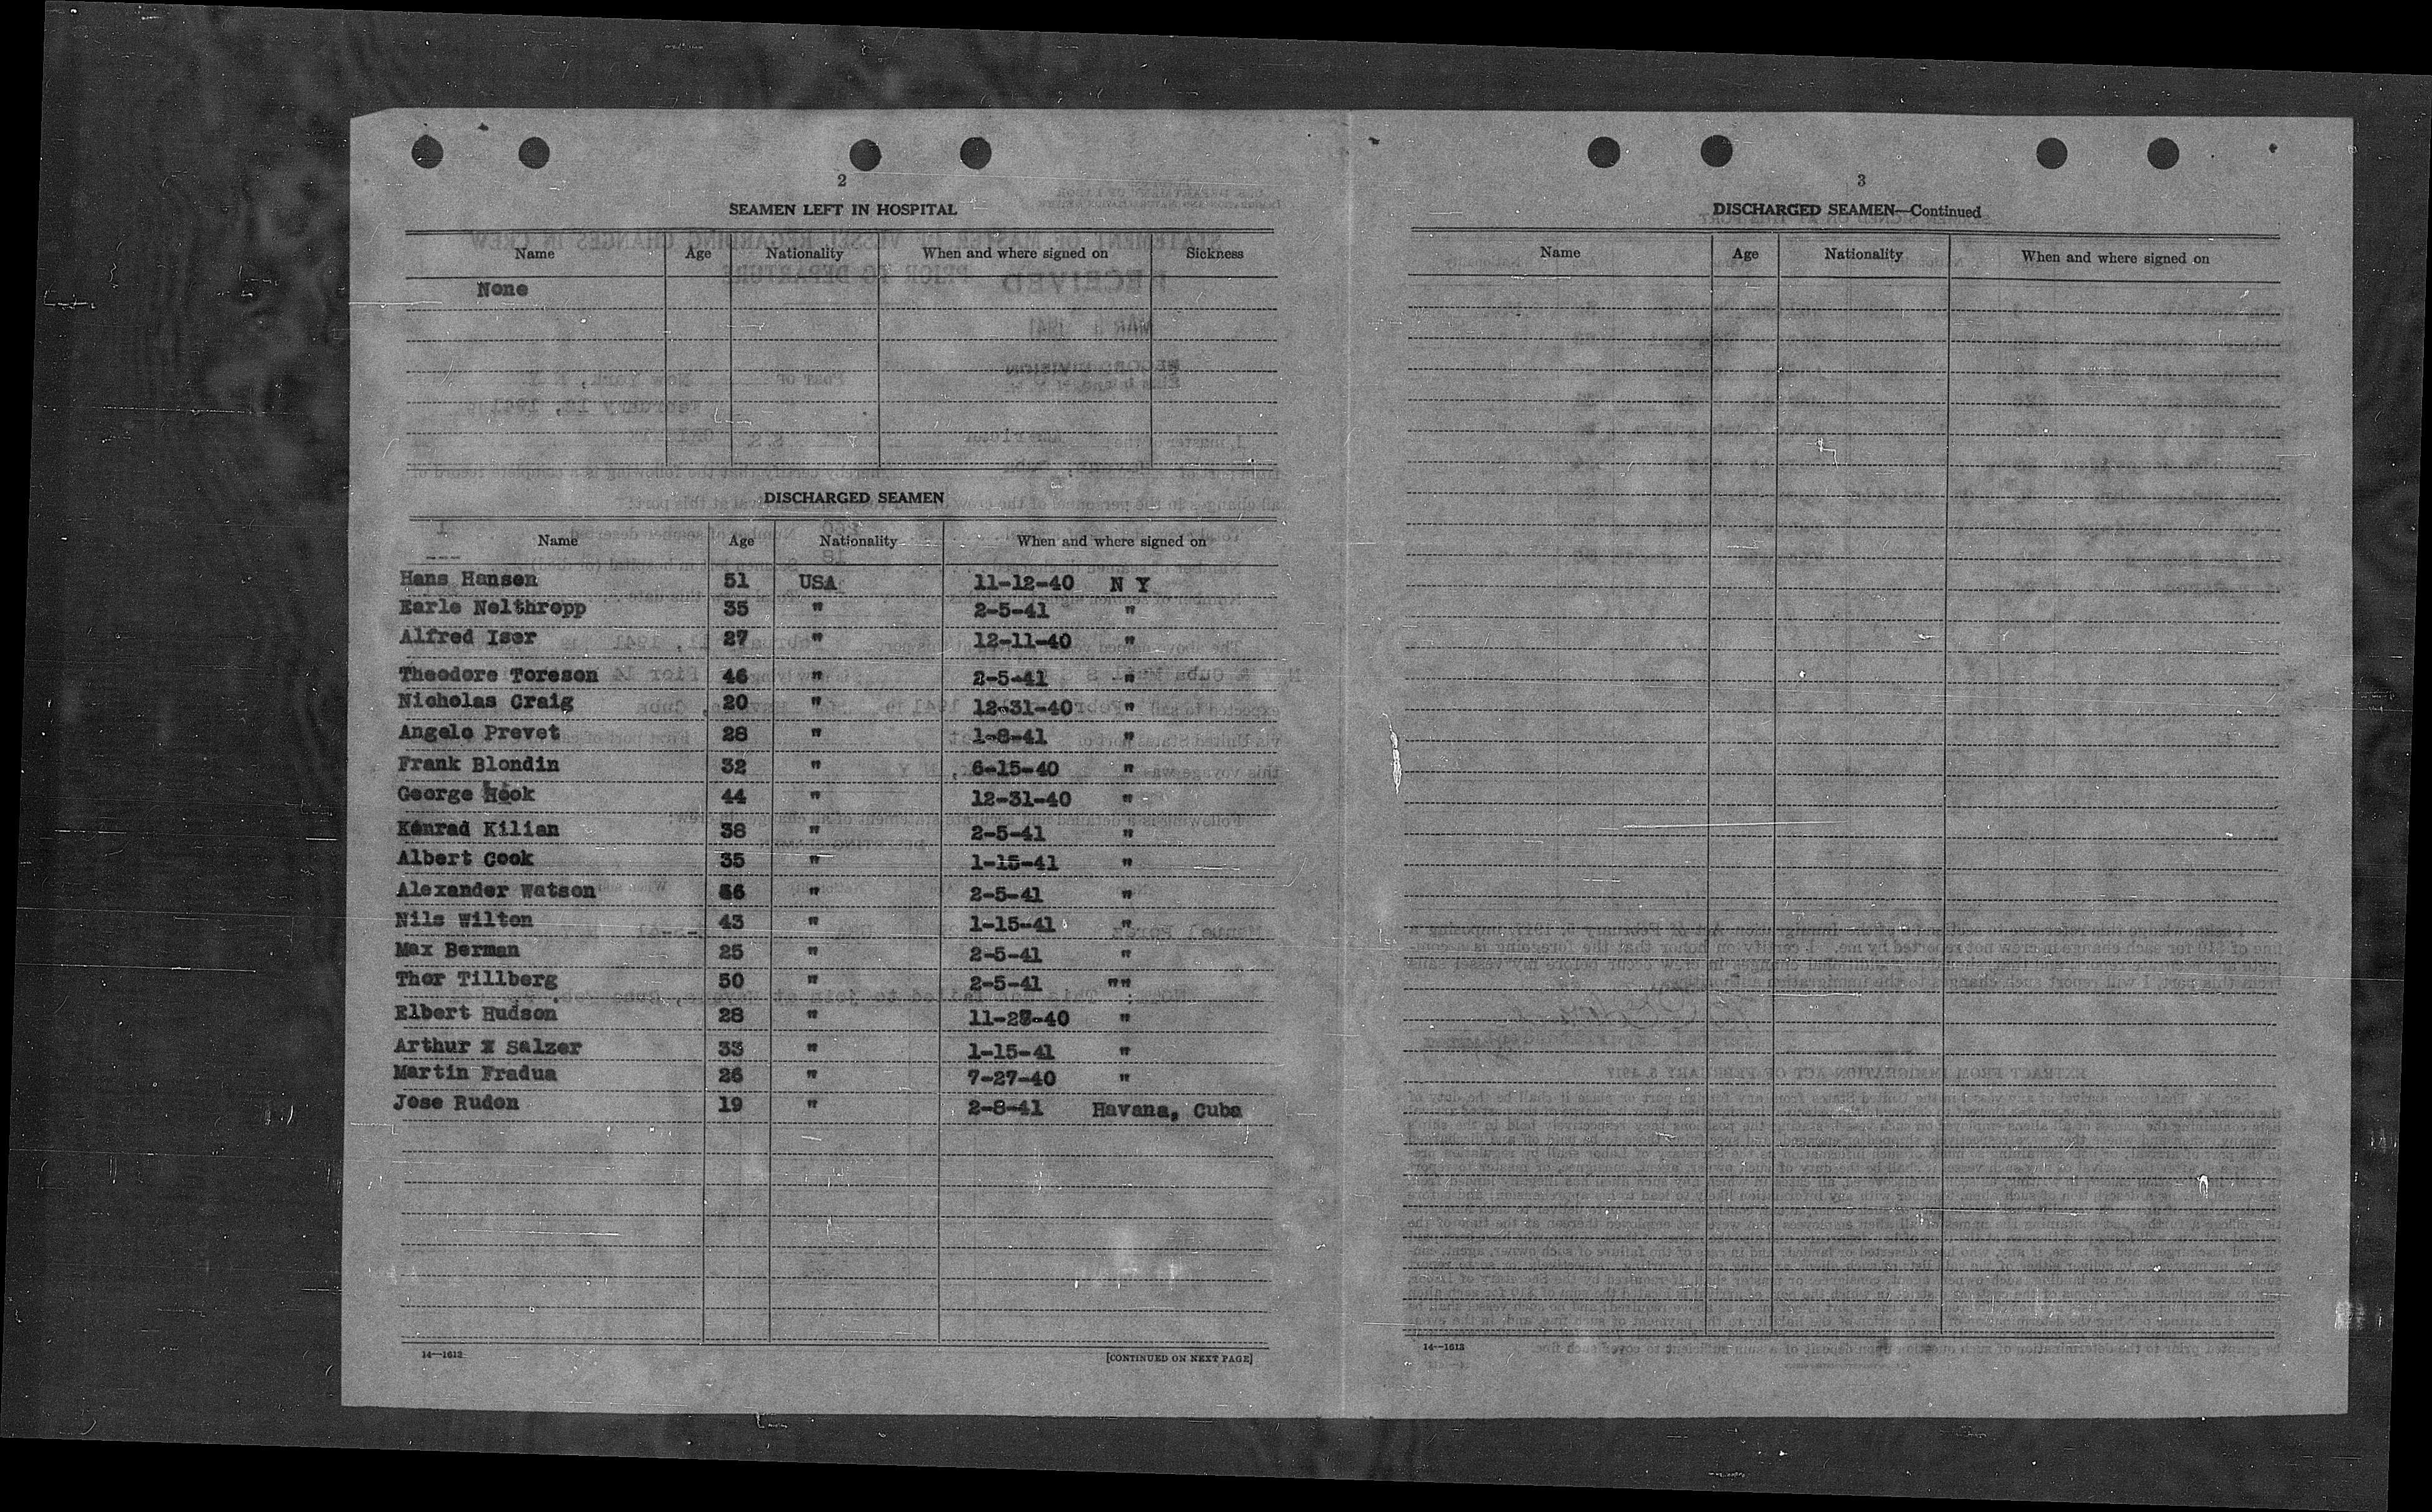 2
SEAMEN LEFT IN HOSPITAL
Name Age Nationality When and where signed on Sickness
None
DISCHARGED SEAMEN
Name Age Nationality When and where signed on
Hans Hansen 51 USA 11-12-40 N Y
Earle Nelthropp 35 " 2-5-41 "
Alfred Iser 27 " 12-11-40 "
Theodore Toreson 46 " 2-5-41 "
Nicholas Craig 20 " 12-31-40 "
Angelo Prevet 28 " 1-8-41 "
Frank Blondin 32 " 6-15-40 "
George Hook 44 " 12-31-40 "
Konrad Kilian 38 " 2-5-41 "
Albert Cook 35 " 1-15-41 "
Alexander Watson " 2-5-41 "
Nils Wilton 43 " 1-15-41 "
Max Berman 25 " 2-5-41 "
Thor Tillberg 50 " 2-5-41 ""
Elbert Hudson 28 " "
Arthur Salzer 33 " 1-15-41 "
Martin Fradua 26 " 7-27-40 "
Jose Rudon 19 " 2-8-41 Havana, Cuba
14—1612
[CONTINUED ON NEXT PAGE]
3
DISCHARGED SEAMEN—Continued
Name Age Nationality When and where signed on
14—1612